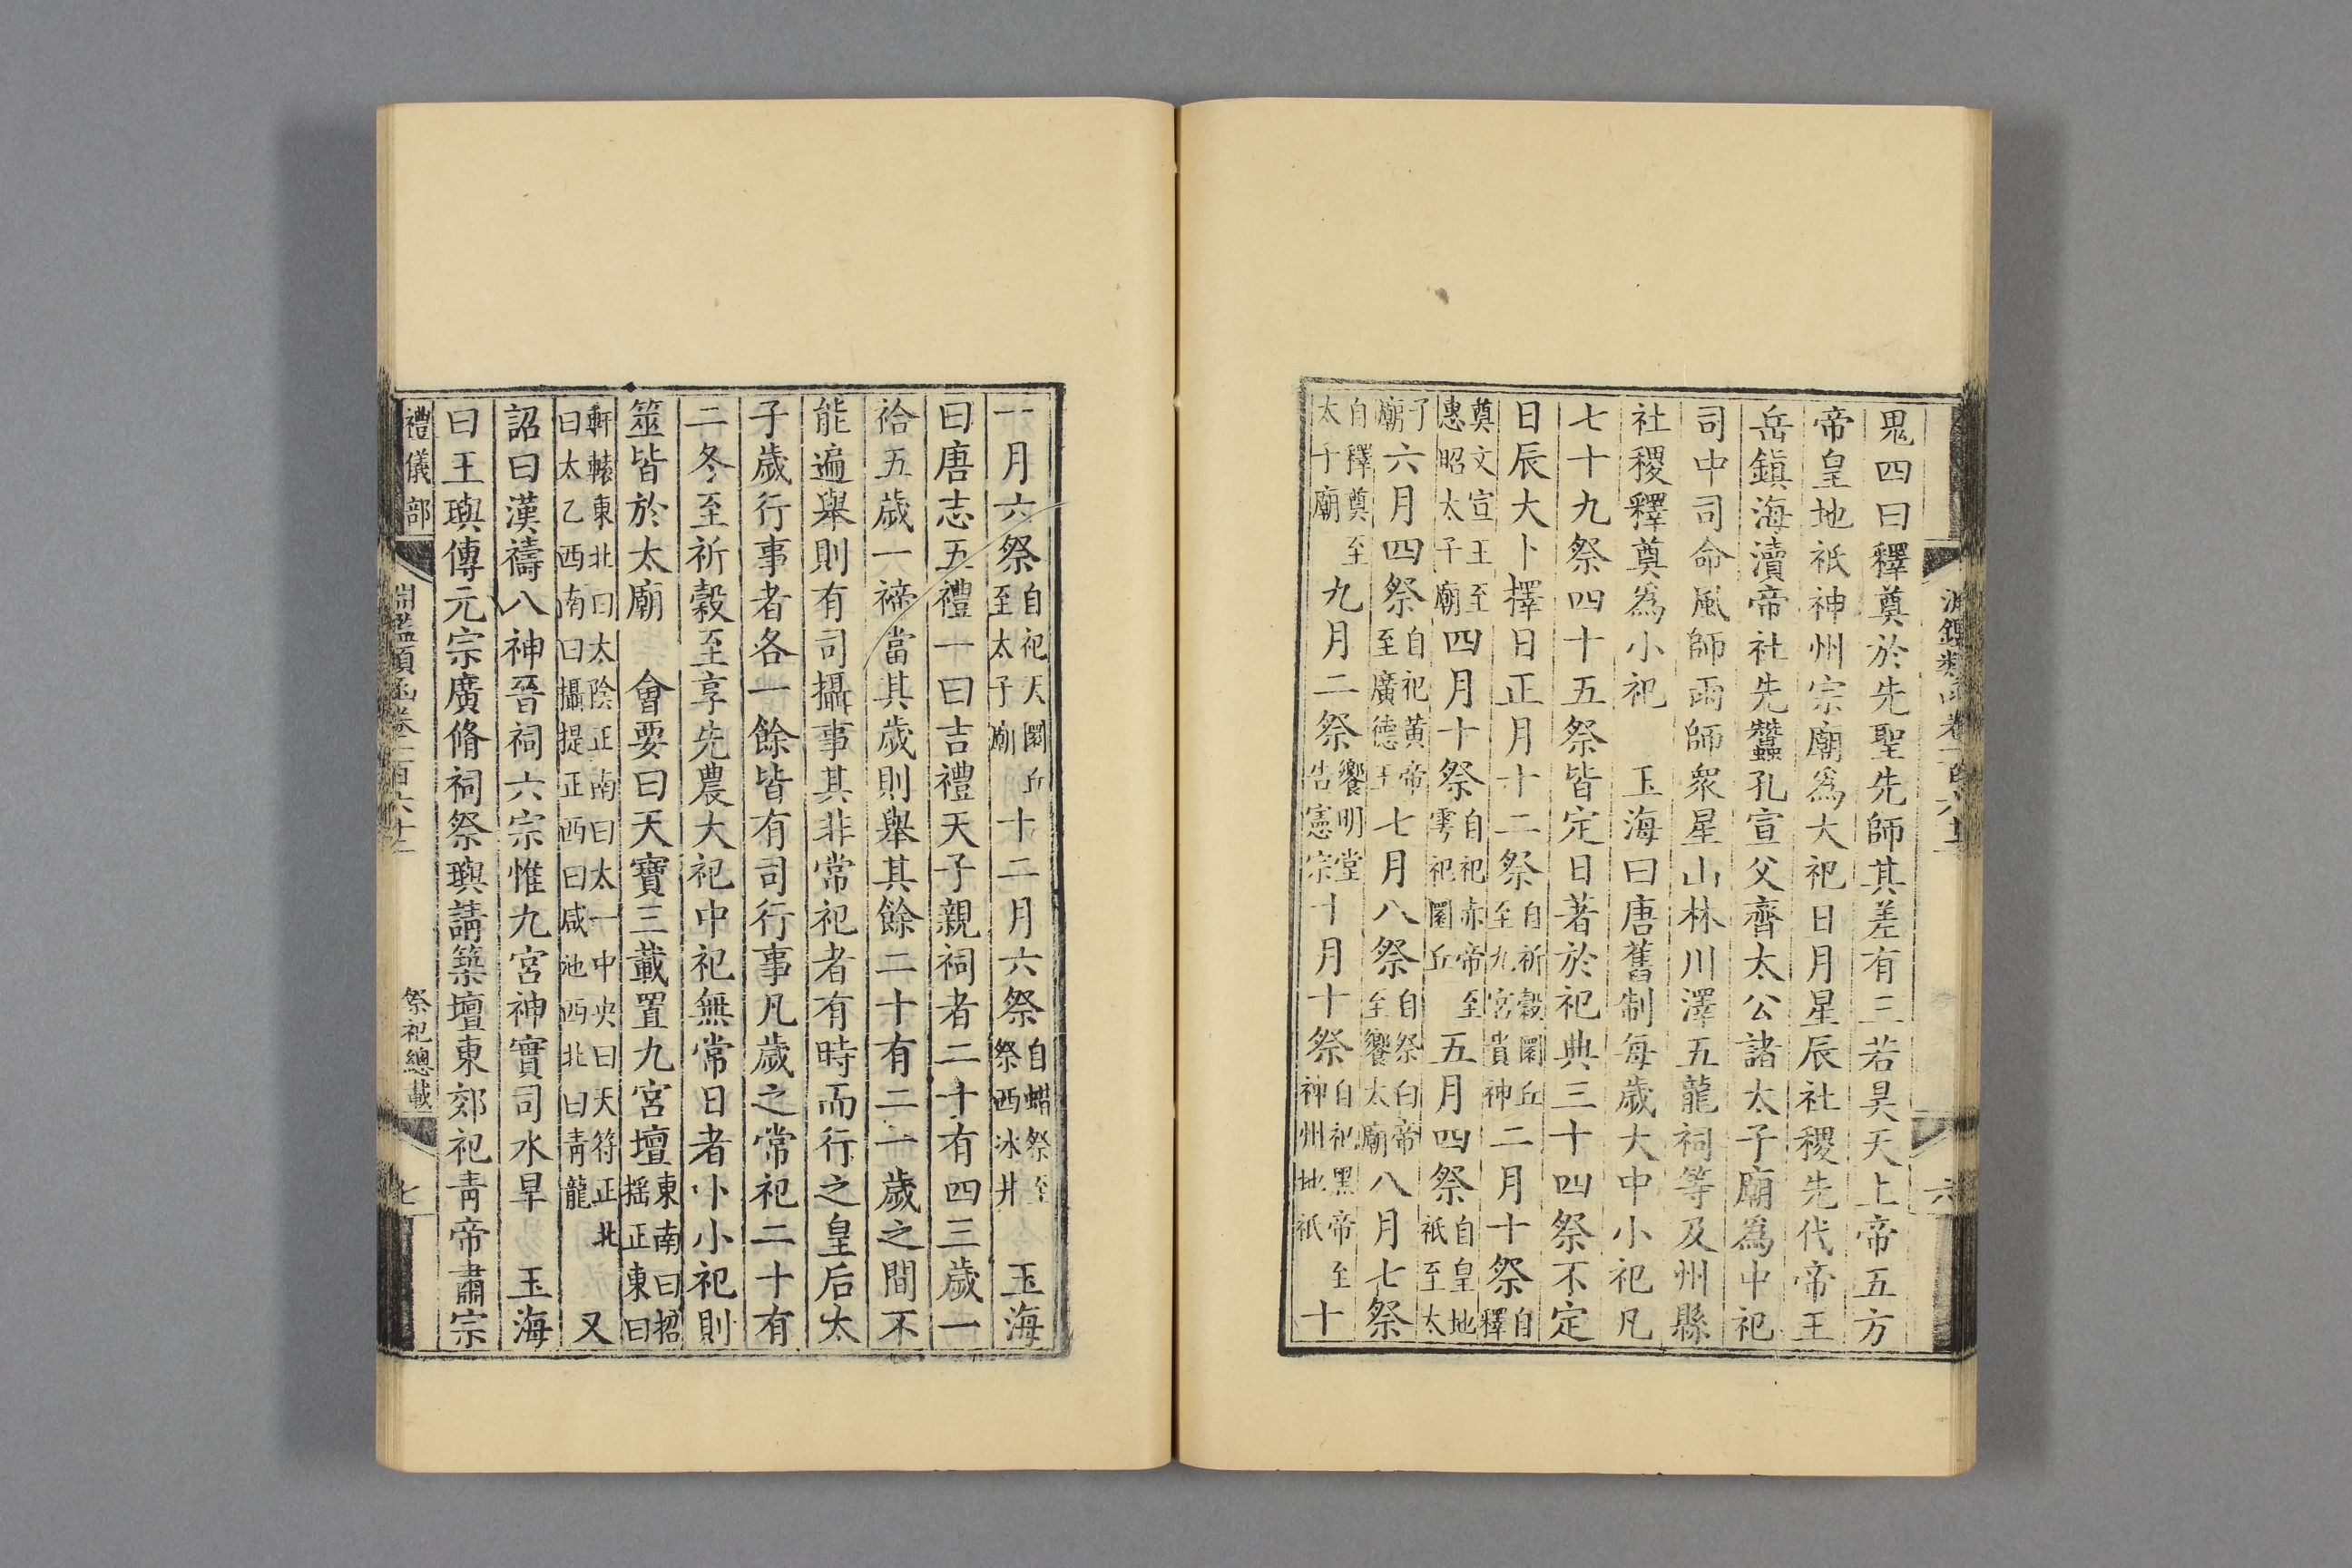 鬼四曰釋奠於先聖先師其差有三若昊天上帝五方
帝皇地祇神州宗廟爲大祀日月星辰社稷先代帝王
岳鎮海瀆帝社先蠶孔宣父齊太公諸太子廟爲中祀
司中司命風師雨師衆星山林川澤五龍祠等及州縣
社稷釋奠爲小祀　玉海曰唐舊制每歲大中小祀凡
七十九祭四十五祭皆定日著於祀典三十四祭不定
日辰大卜擇日正月十二祭自祈穀圜丘至九宮貴神二月十祭自釋
奠文宣王至惠昭太子廟四月十祭自祀赤帝至雩祀圜丘五月四祭自皇地祇至太
子廟六月四祭自祀黃帝至廣德王七月八祭自祭白帝至饗太廟八月七祭
自釋奠至太子廟九月二祭饗明堂告憲宗十月十祭自祀黑帝至神州地祇十
一月六祭自祀天圜丘至太子廟十二月六祭自蜡祭至祭西冰井　玉海
曰唐志五禮一曰吉禮天子親祠者二十有四三歲一
祫五歲一禘當其歲則舉其餘二十有二一歲之間不
能遍舉則有司攝事其非常祀者有時而行之皇后太
子歲行事者各一餘皆有司行事凡歲之常祀二十有
二冬至祈穀至享先農大祀中祀無常日者卜小祀則
筮皆於太廟　會要曰天寶三載置九宮壇東南曰招搖正東曰
軒轅東北曰太陰正南曰太一中央曰天符正北曰太乙西南曰攝提正西曰咸池西北曰青龍　又
詔曰漢禱八神晉祠六宗惟九宮神實司水旱　玉海
曰王璵傳元宗廣脩祠祭璵請築壇東郊祀青帝肅宗
禮儀部
淵鑑類函卷一百六十二
祭祀總載
七